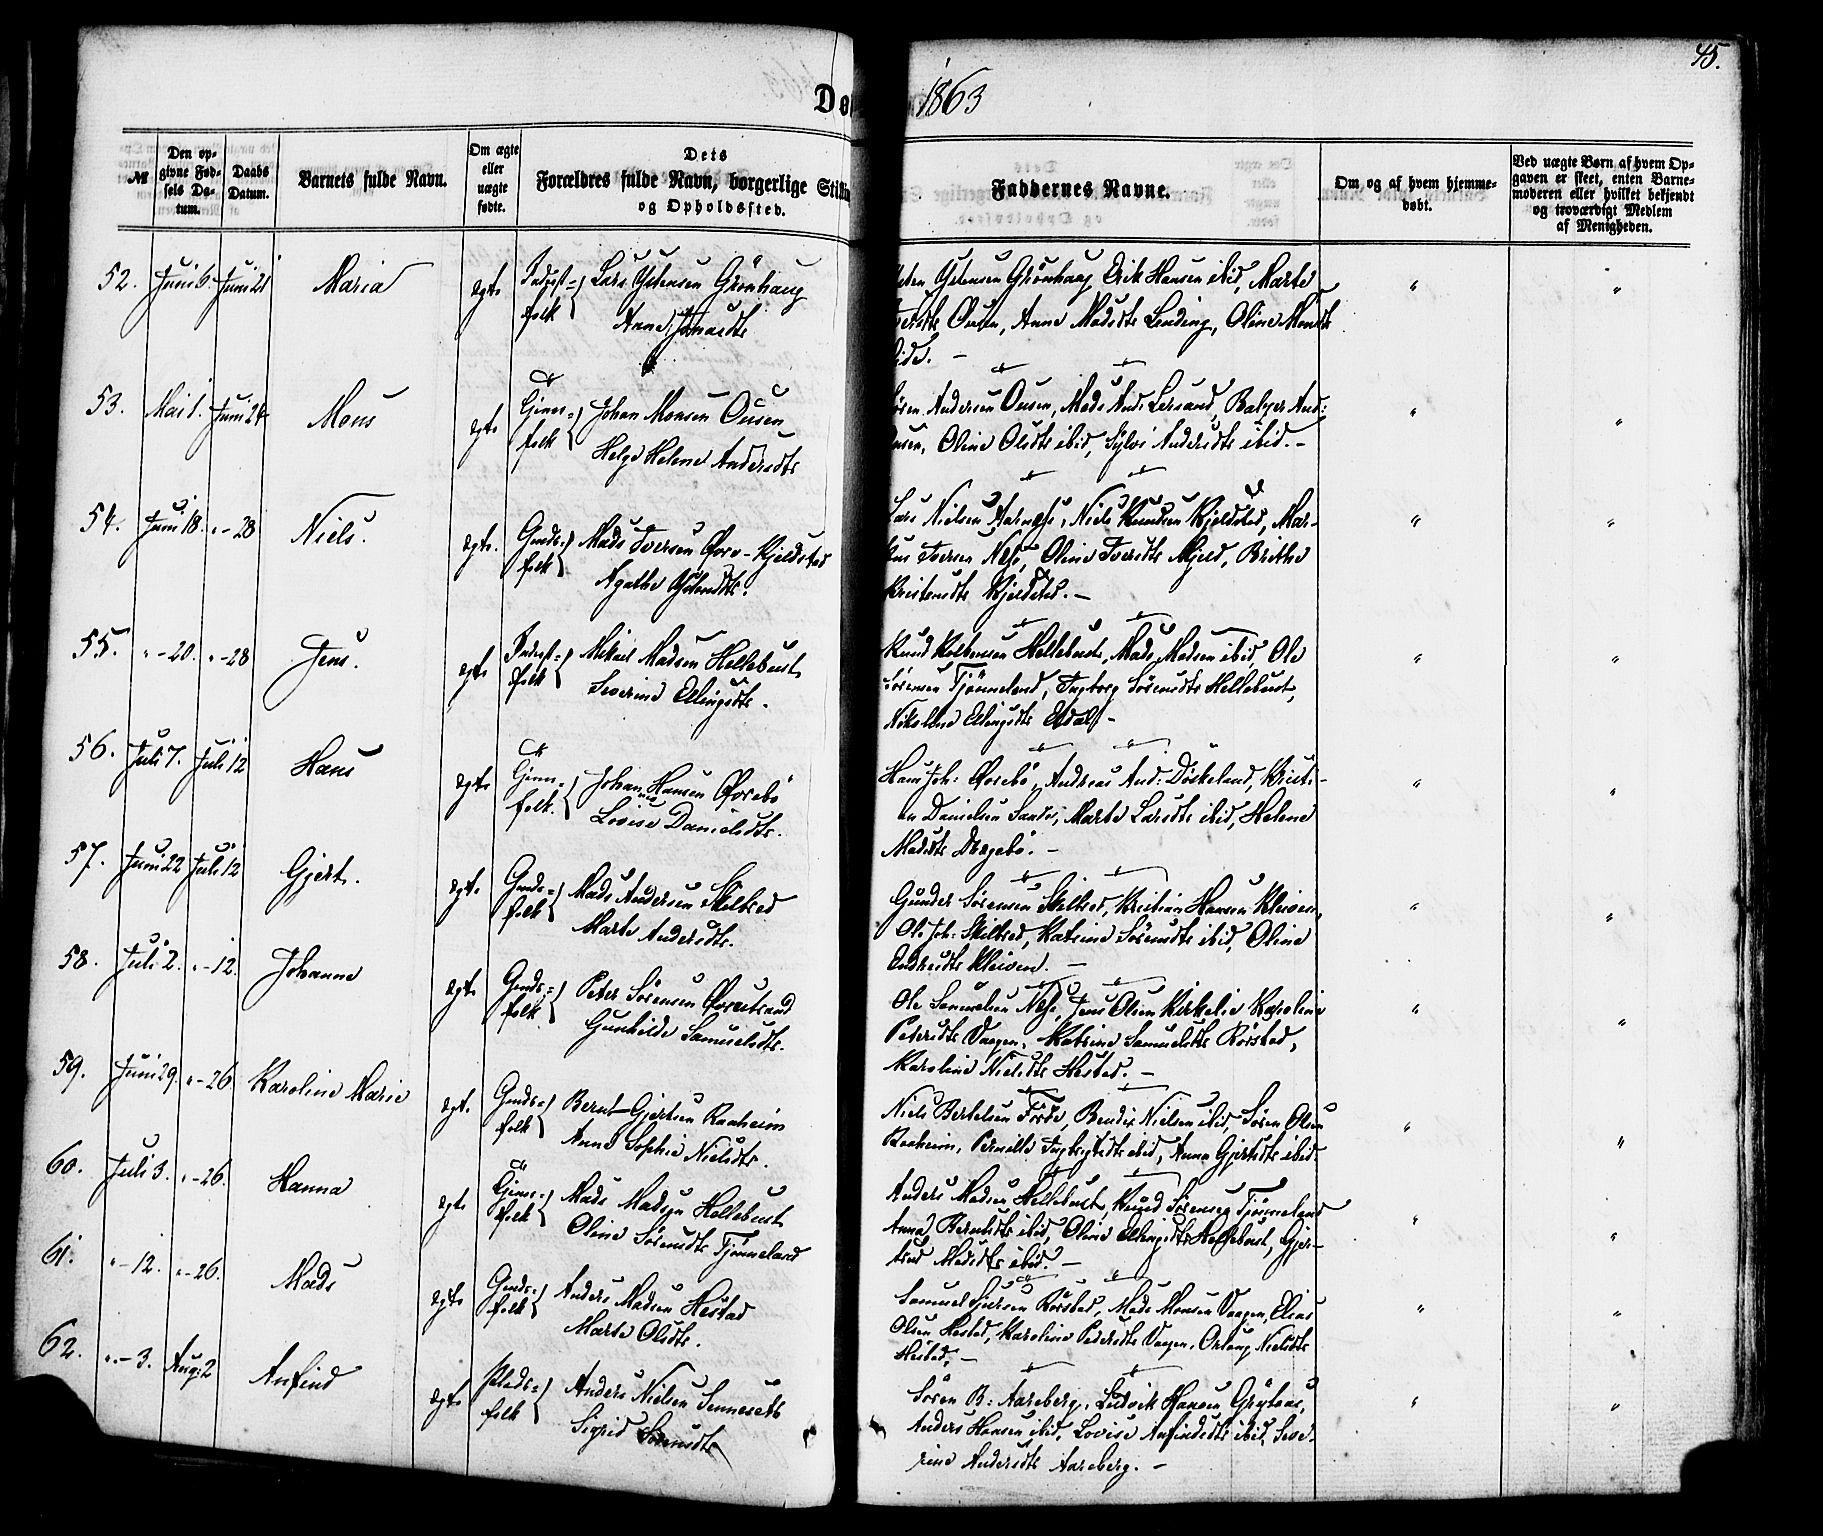 45.
Dø
1863
№
Den op-
givne Fød-
sels Da-
tum.
Daabs
Datum.
Barnets fulde Navn.
Om ægte
eller
uægte
fødte.
Dets
Forældres fulde Navn, borgerlige Stillin
og Opholdssted.
Faddernes Navne.
Om og af hvem hjemme-
døbt.
Ved uægte Børn af hvem Op-
gaven er skeet, enten Barne-
moderen eller hvilket bekjendt
og troværdigt Medlem
af Menigheden.
52. Juni 6. Juni 21 Maria ægte Indrst= Lars Ystensen Grönhaug
folk Anne
sten Ystensen Grönhaug, Erik Hansen ibid, Marte
Ousen, Anne Madsdtr Lending, Oline Monsdtr
ibid. –
53. Mai 1. Juni 24 Mons ægte Gjen= Johan Monsen Ousen
folk Helge Helene Andersdtr
Sören Andersen Ousen, Mads And: Lersund, Balzer And:
Ousen, Oline Olsdtr ibid, Sylvi Andersdtr ibid. –
54. Juni 18. " – 28 Niels. ægte. Gmds= Mads Iversen Qvev-Kjeldstad
folk Agathe Ystensdtr.
Lars Nielsen Aarnæs, Niels Knudsen Kjeldstad, Mar-
kus Iversen Næs, Oline Iversdtr Mjeld, Brithe
Kristensdtr Kjeldstad. –
55. " – 20. " – 28 Jens. ægte Indrst= Mikael Madsen Hellebust
folk Severine Ellingsdtr.
Knud Hellebust, Mads Madsen ibid, Ole
Sörensen Tjönneland, Ingborg Sörensdtr Hellebust,
Nikoline Ellingsdtr Eldal –
56. Juli 7. Juli 12 Hans ægte Gjen= Johan Hansen Qvrebö
folk. Lovise Danielsdtr.
Hans Joh: Qvrebö, Andreas And: Döskeland, Kristi-
an Danielsen Sande, Marte Larsdtr ibid, Helene
Madsdtr Drægebö. –
57. Juni 22 Juli 12 Gjert. ægte Gmds= Mads Andersen Skilbred
folk Marte Andersdtr.
Gunder Sörensen Skilbred, Kristian Hansen Kleiven,
Ole Joh: Skilbred, Katrine Sörensdtr ibid, Oline
Andersdtr Kleiven. –
58. Juli 2. " – 12. Johanne ægte Gmds= Peter Sörensen Qvrestrand
folk Gunhilde Samuelsdtr.
Ole Samuelsen Næs, Jens Olsen Kirkelie Karoline
Pedersdtr Vaagen, Katrine Samuelsdtr Rörstad,
Karoline Nielsdtr Hestad. –
59. Juni 29. " – 26 Karoline Marie ægte. Gmds= Bernt Gjertsen Raaheim
folk Anne Sophie Nielsdtr.
Niels Bertelsen Förde, Bendix Nielsen ibid, Sören Olsen
Raaheim, Pernille Ingbrigtsdtr ibid, Anna Gjertsdtr ibid.
60. Juli 3. " – 26. Hanna ægte Gjen= Mads Madsen Hellebust
folk Oline Sörensdtr Tjönneland
Anders Madsen Hellebust, Knud Sörensen Tjönneland
Anna Berntsdtr ibid, Oline Ellingsdtr Hellebust, Gjer-
trud Madsdtr ibid. –
61. " – 12. " – 26. Mads ægte Gmds= Anders Madsen Hestad
folk Marte Olsdtr.
Samuel Rörstad, Mads Monsen Vaagen, Elias
Olsen Hestad, Karoline Pedersdtr Vaagen, Nielsdtr
Hestad, –
62. " – 3. Aug: 2 Anfind ægte Plads= Anders Nielsen Senneseth
folk Sigrid Sörensdtr
Sören B: Aareberg, Ludvik Hansen Grytaas,
Anders Hansen ibid, Lovise Anfindsdtr ibid, Seve-
rine Andersdtr Aareberg. –